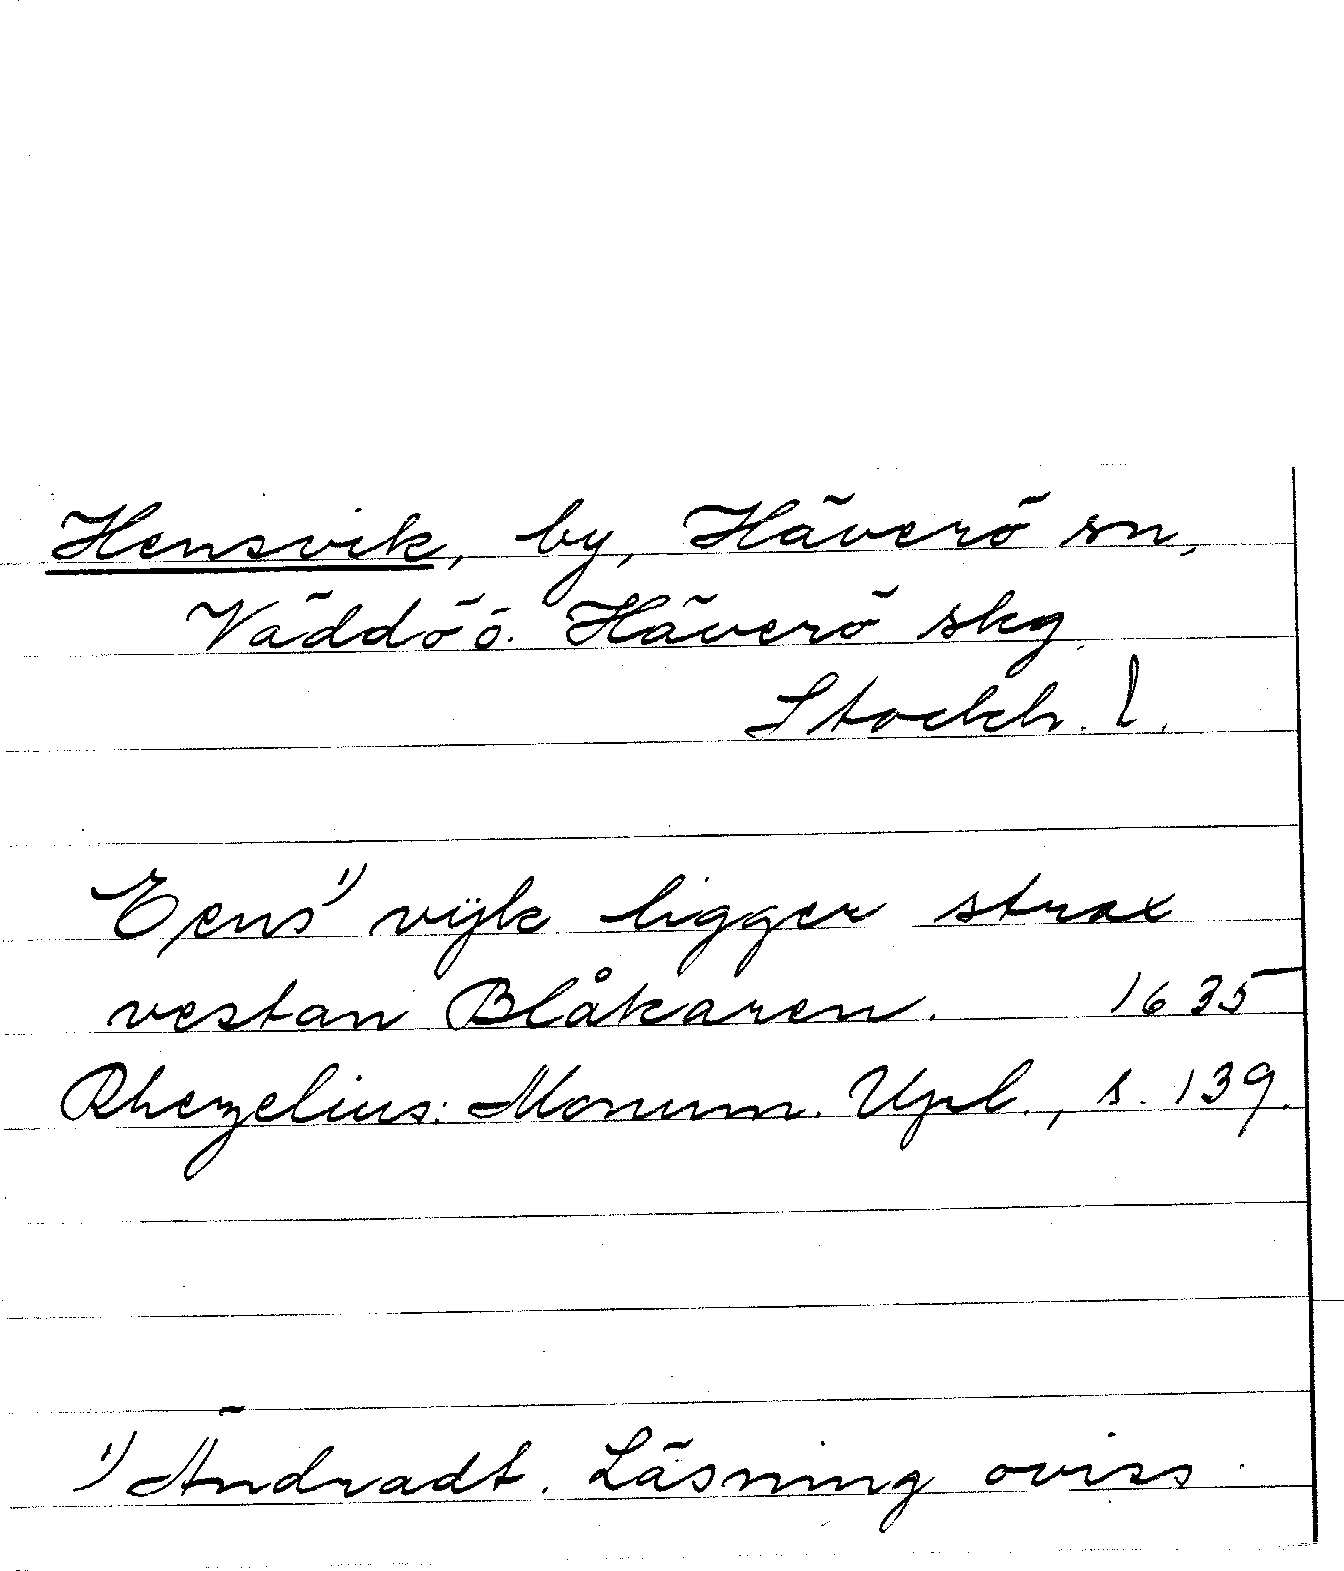 Hensvik, by, Häverö sn,
Väddö ö. Häverö skg
Stockh. l.
Epns¹⁾ vijk ligger strax
vestan Blåkaren. 1635
Rhezelius: Monum. Upl., s. 139.
¹⁾ Ändradt. Läsning oviss.